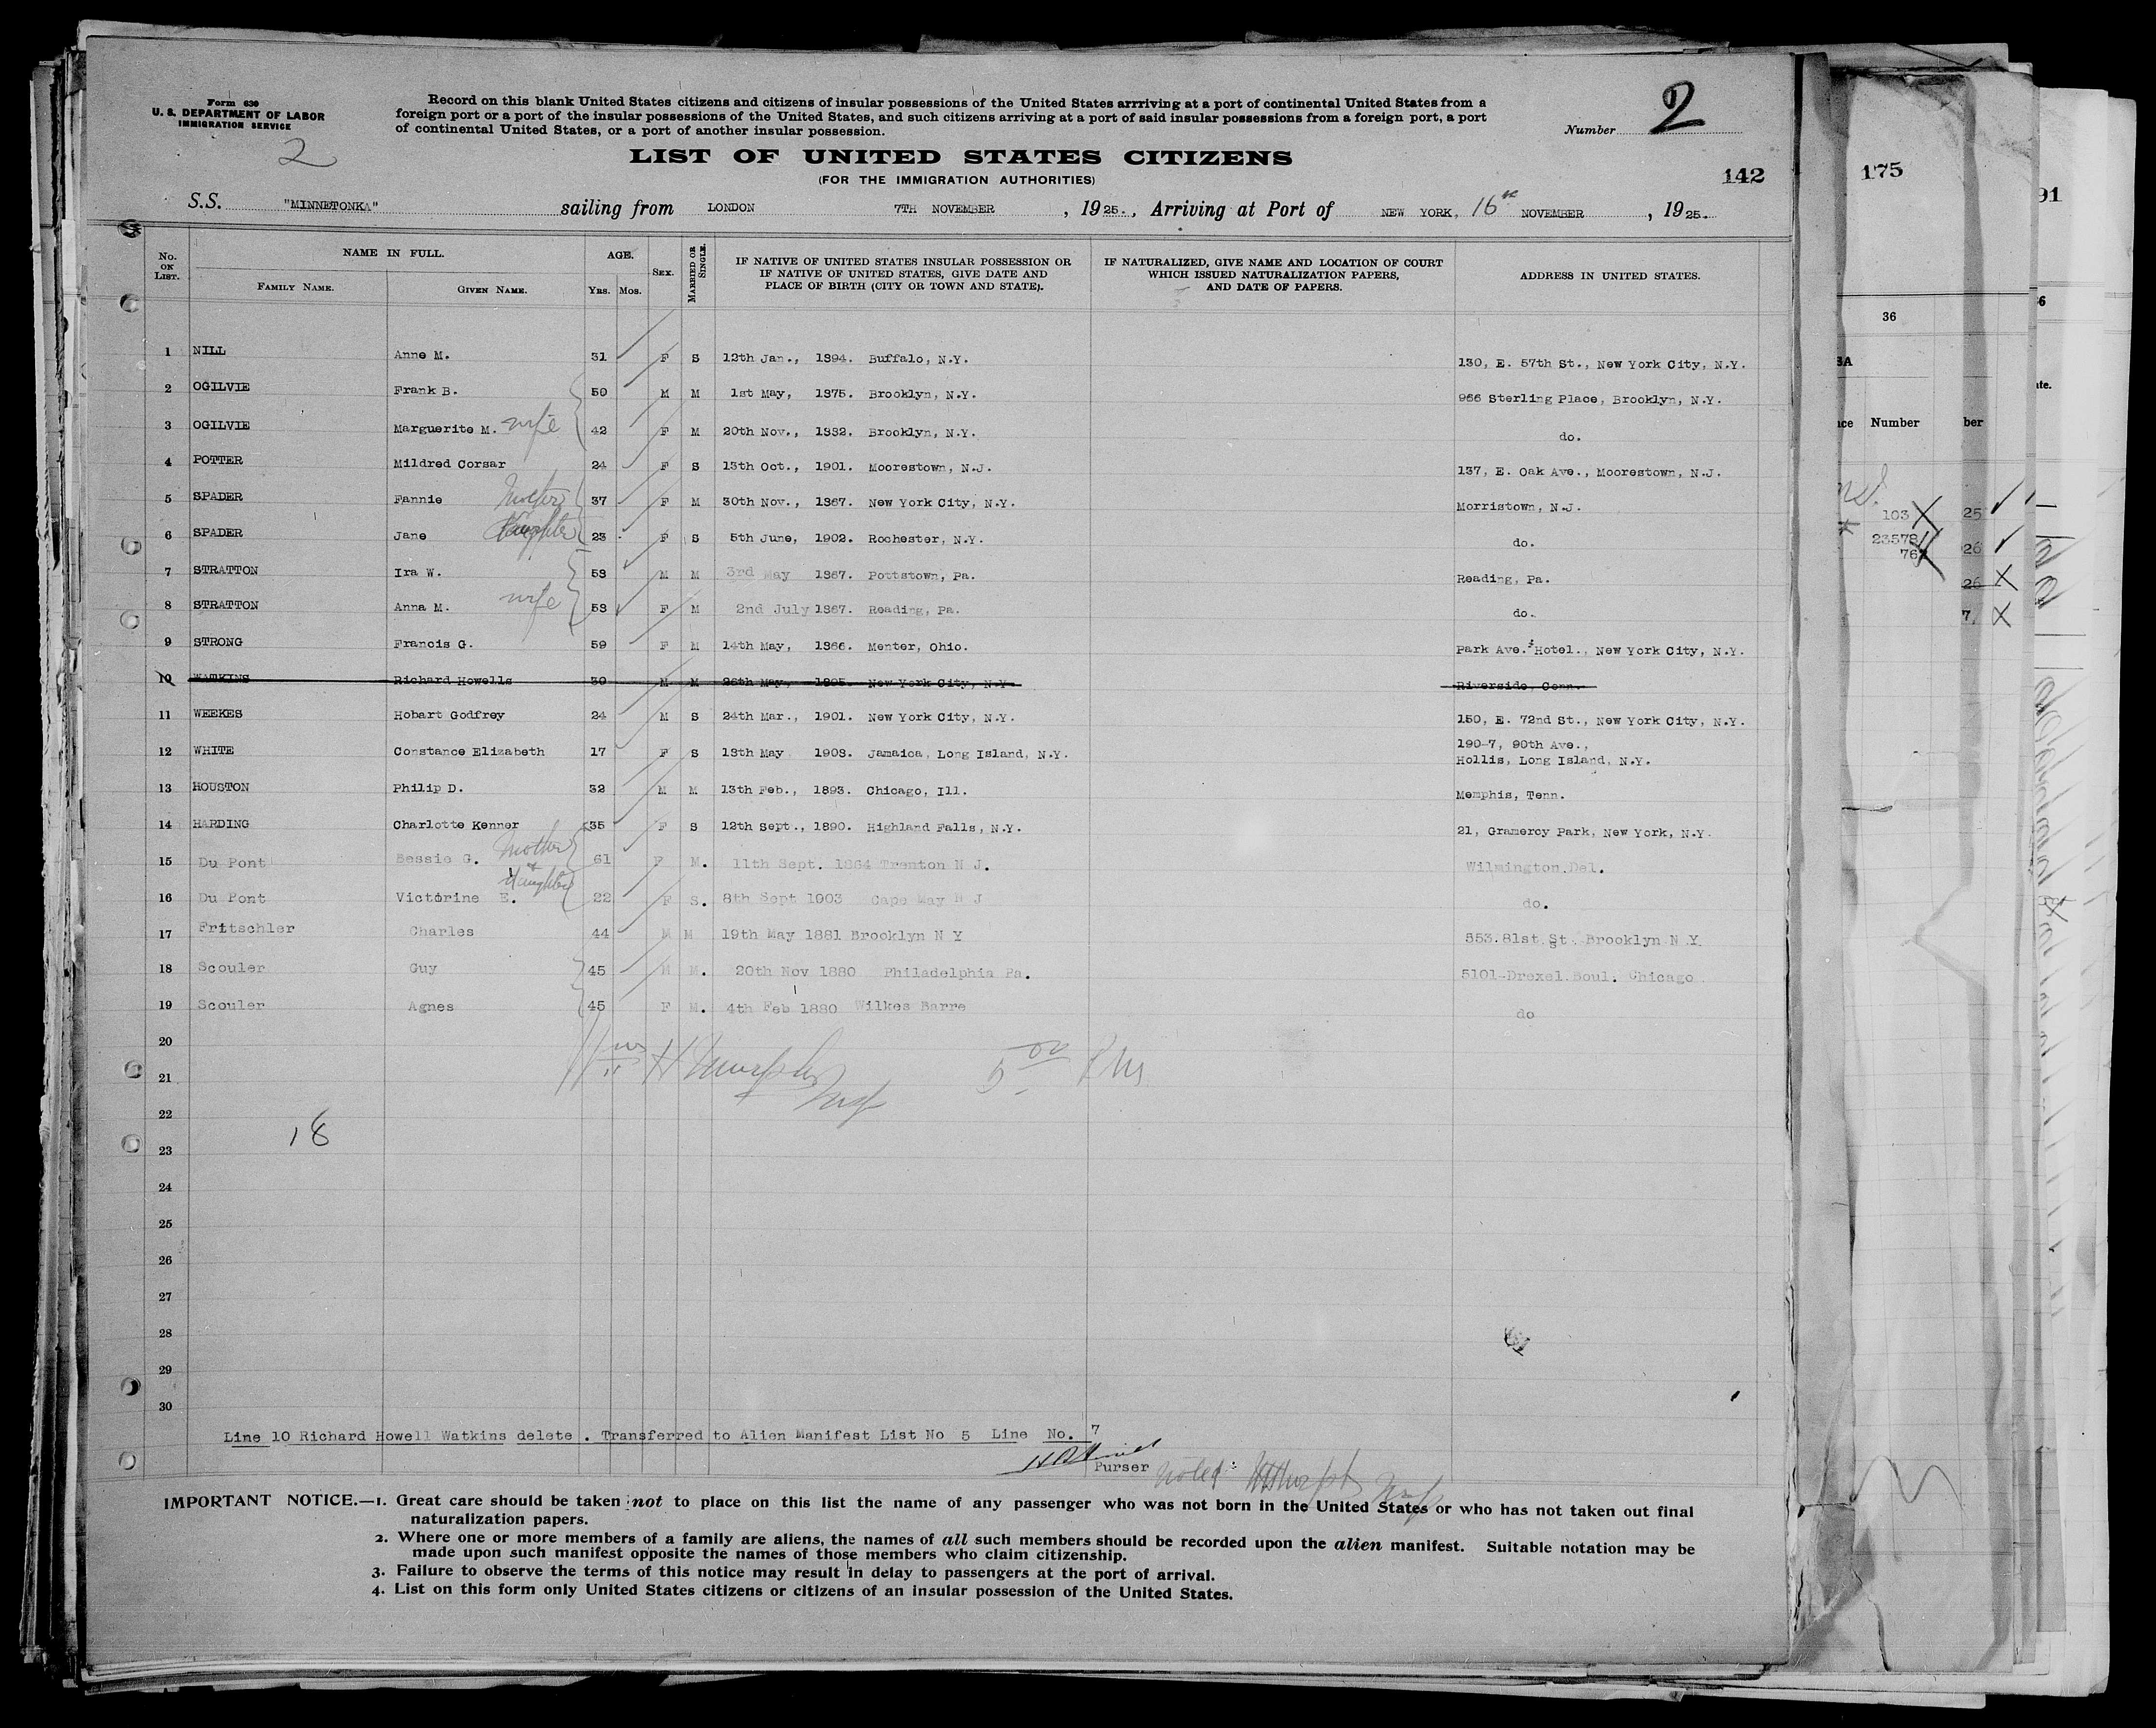 Form 630
U. S. DEPARTMENT OF LABOR
IMMIGRATION SERVICE
2
Record on this blank United States citizens and citizens of insular possessions of the United States arrriving at a port of continental United States from a
foreign port or a port of the insular possessions of the United States, and such citizens arriving at a port of said insular possessions from a foreign port, a port
of continental United States, or a port of another insular possession.
Number 2
LIST OF UNITED STATES CITIZENS
(FOR THE IMMIGRATION AUTHORITIES)
142
S.S. "MINNETONKA" sailing from LONDON 7TH NOVEMBER, 1925., Arriving at Port of NEW YORK, 16th NOVEMBER, 1925.
No. ON LIST. NAME IN FULL. FAMILY NAME. GIVEN NAME. AGE. YRS. MOS. SEX. MARRIED OR SINGLE. IF NATIVE OF UNITED STATES INSULAR POSSESSION OR IF NATIVE OF UNITED STATES, GIVE DATE AND PLACE OF BIRTH (CITY OR TOWN AND STATE). IF NATURALIZED, GIVE NAME AND LOCATION OF COURT WHICH ISSUED NATURALIZATION PAPERS, AND DATE OF PAPERS. ADDRESS IN UNITED STATES.
1 NILL Anne M. 31 F S 12th Jan., 1894. Buffalo, N.Y. 130, E. 57th St., New York City, N.Y.
2 OGILVIE Frank B. 50 M M 1st May, 1875. Brooklyn, N.Y. 966 Sterling Place, Brooklyn, N.Y.
3 OGILVIE Marguerite M. wife 42 F M 20th Nov., 1882. Brooklyn, N.Y. do.
4 POTTER Mildred Corsar 24 F S 13th Oct., 1901. Moorestown, N.J. 137, E. Oak Ave., Moorestown, N.J.
5 SPADER Fannie Mother 37 F M 30th Nov., 1867. New York City, N.Y. Morristown, N.J.
6 SPADER Jane Daughter 23 F S 5th June, 1902. Rochester, N.Y. do.
7 STRATTON Ira W. 58 M M 3rd May 1867. Pottstown, Pa. Reading, Pa.
8 STRATTON Anna M. wife 58 F M 2nd July 1867. Reading, Pa. do.
9 STRONG Francis G. 59 F M 14th May, 1866. Menter, Ohio. Park Ave. Hotel., New York City, N.Y.
10 WATKINS Richard Howells 30 M M 26th May, 1895. New York City, N.Y. Riverside, Conn.
11 WEEKES Hobart Godfrey 24 M S 24th Mar., 1901. New York City, N.Y. 150, E. 72nd St., New York City, N.Y.
12 WHITE Constance Elizabeth 17 F S 13th May 1908. Jamaica, Long Island, N.Y. 190-7, 90th Ave.,
Hollis, Long Island, N.Y.
13 HOUSTON Philip D. 32 M M 13th Feb., 1893. Chicago, Ill. Memphis, Tenn.
14 HARDING Charlotte Kenner 35 F S 12th Sept., 1890. Highland Falls, N.Y. 21, Gramercy Park, New York, N.Y.
15 Du Pont Bessie G. Mother 61 F M. 11th Sept. 1864 Trenton N J. Wilmington.Del.
16 Du Pont Victorine E. + daughter 22 F S. 8th Sept 1903 Cape May N J do.
17 Fritschler Charles 44 M M 19th May 1881 Brooklyn N Y 553.81st St. Brooklyn N Y.
18 Scouler Guy 45 M M. 20th Nov 1880 Philadelphia Pa. 5101-Drexel Boul. Chicago
19 Scouler Agnes 45 F M. 4th Feb 1880 Wilkes Barre do
20
21
22
18
23
24
25
26
27
28
29
30
Line 10 Richard Howell Watkins delete . Transferred to Alien Manifest List No 5 Line No. 7
Purser Noted
IMPORTANT NOTICE.—1. Great care should be taken not to place on this list the name of any passenger who was not born in the United States or who has not taken out final
naturalization papers.
2. Where one or more members of a family are aliens, the names of all such members should be recorded upon the alien manifest. Suitable notation may be
made upon such manifest opposite the names of those members who claim citizenship.
3. Failure to observe the terms of this notice may result in delay to passengers at the port of arrival.
4. List on this form only United States citizens or citizens of an insular possession of the United States.
175
36
Number
103
23578
76
91
ber
25
26
26
7